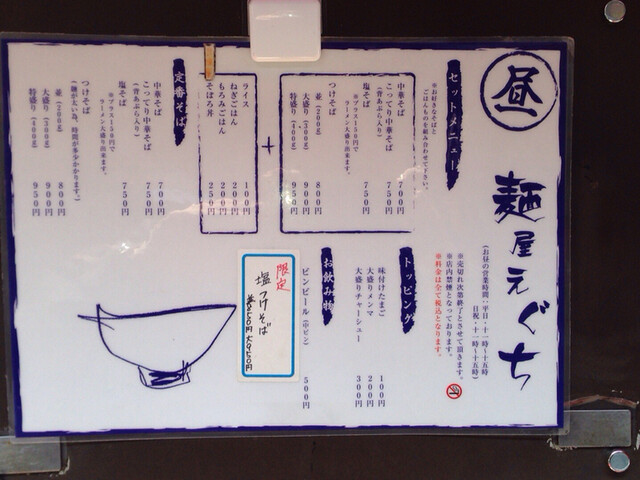 昼
麺屋えぐち
(お昼の営業時間:平日・十一時〜十五時
日祝・十一時〜十五時)
※売切れ次第終了とさせて頂きます。
※店内禁煙となっております。
※料金は全て税込となります。
セットメニュー
※お好きなそばと
ごはんものを組み合わせて下さい。
中華そば 700円
こってり中華そば 750円
(背あぶら入り)
塩そば 750円
※プラス150円で
ラーメン大盛り出来ます。
つけそば
並(200g) 800円
大盛り(300g) 900円
特盛り(400g) 950円
+
ライス 100円
ねぎごはん 200円
もろみごはん 200円
そぼろ丼 250円
定番そば
中華そば 700円
こってり中華そば 750円
(背あぶら入り)
塩そば 750円
※プラス150円で
ラーメン大盛り出来ます。
つけそば
(麺が太い為、時間が多少かかります。)
並(200g) 800円
大盛り(300g) 900円
特盛り(400g) 950円
トッピング
味付けたまご 100円
大盛りメンマ 200円
大盛りチャーシュー 300円
お飲み物
ビンビール(中ビン) 500円
限定
塩つけそば
並850円 大950円